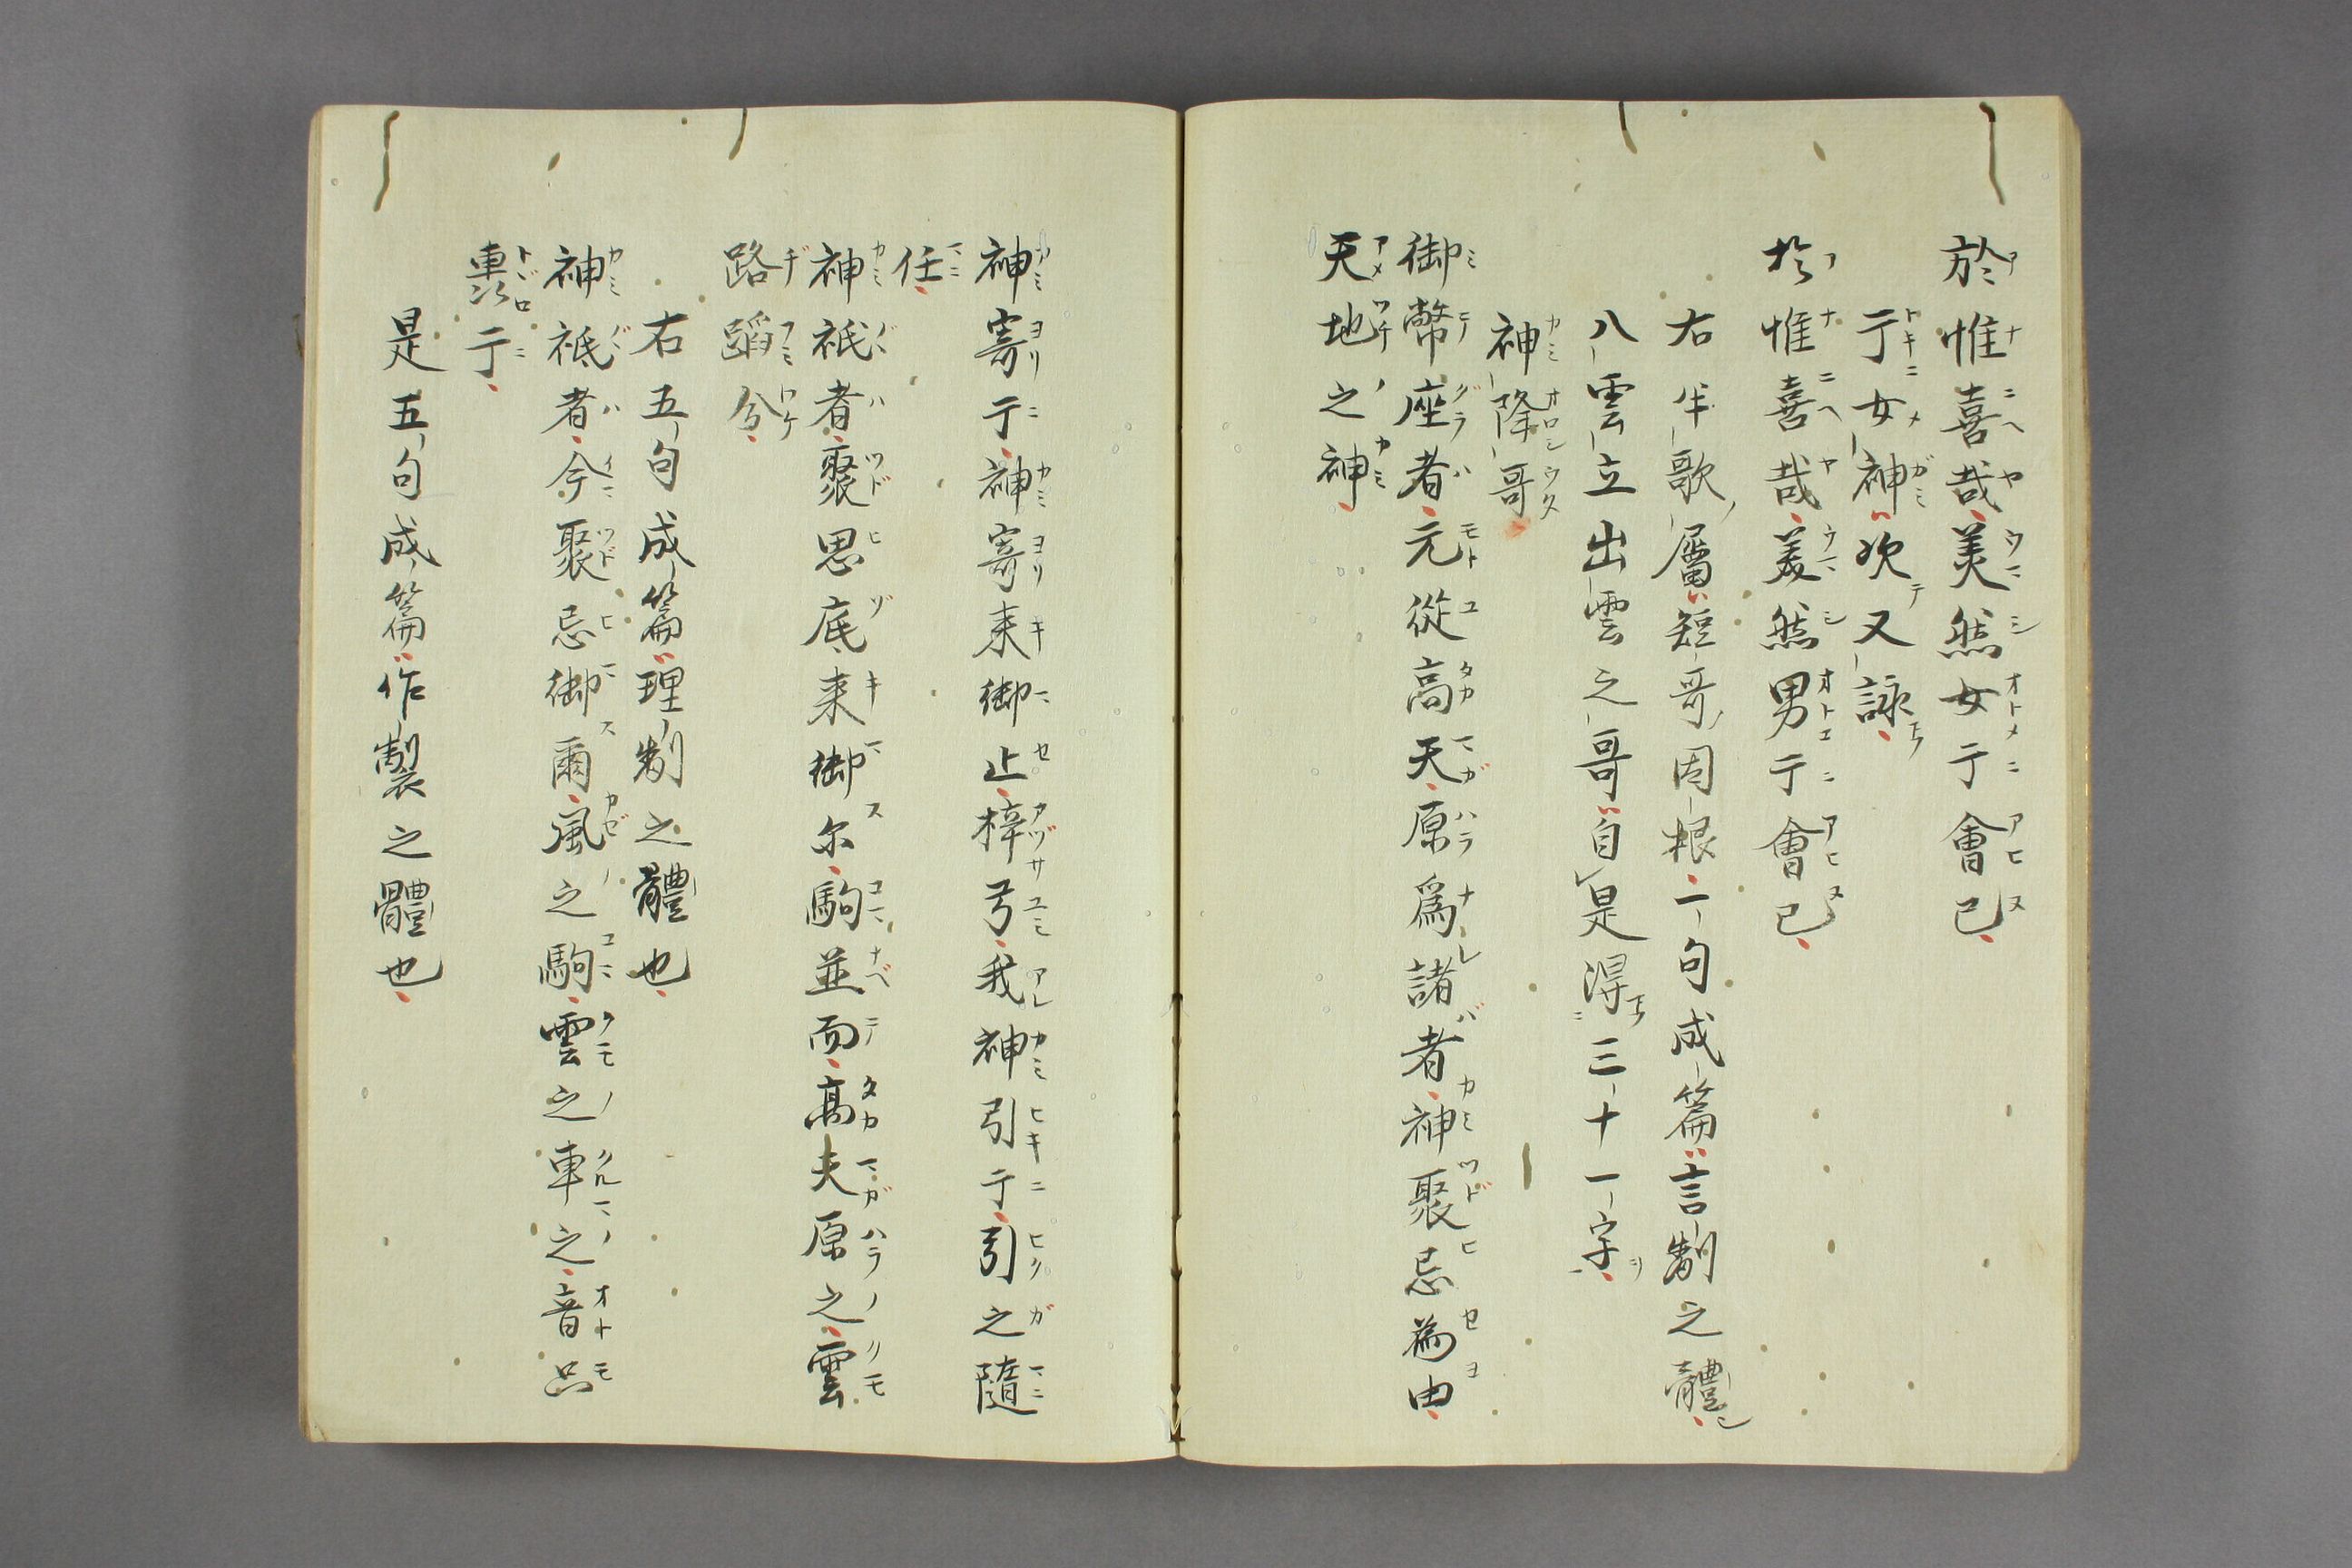 於惟喜哉美然女亍會已
亍女神次又詠
於惟喜哉美然男亍會已
右半歌屬短哥因根一句成篇言制之體
八雲立出雲之哥自是得三十一字
神降哥
御幣座者元從高天原爲諸者神聚忌為由
天地之神
神寄亍神寄来御止梓弓我神引亍引之隨
任
神祇者聚思底来御尓駒並而髙天原之雲
路蹈分
右五句成篇理制之體也
神祇者今聚忌御爾風之駒雲之車之音
亍
是五句成篇作製之體也